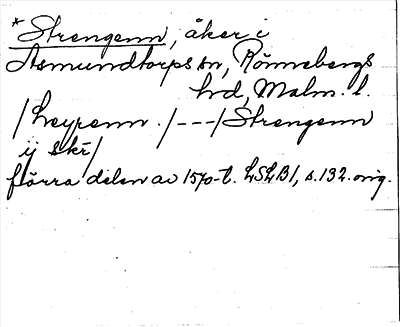 * Strengenn, åker i
Asmundtorps sn, Rönnebergs
hd, Malm. l.
/Heyrenn./---/Strengenn
ij skr/
förra delen av 1570-t. LSLB1, s.132. orig.